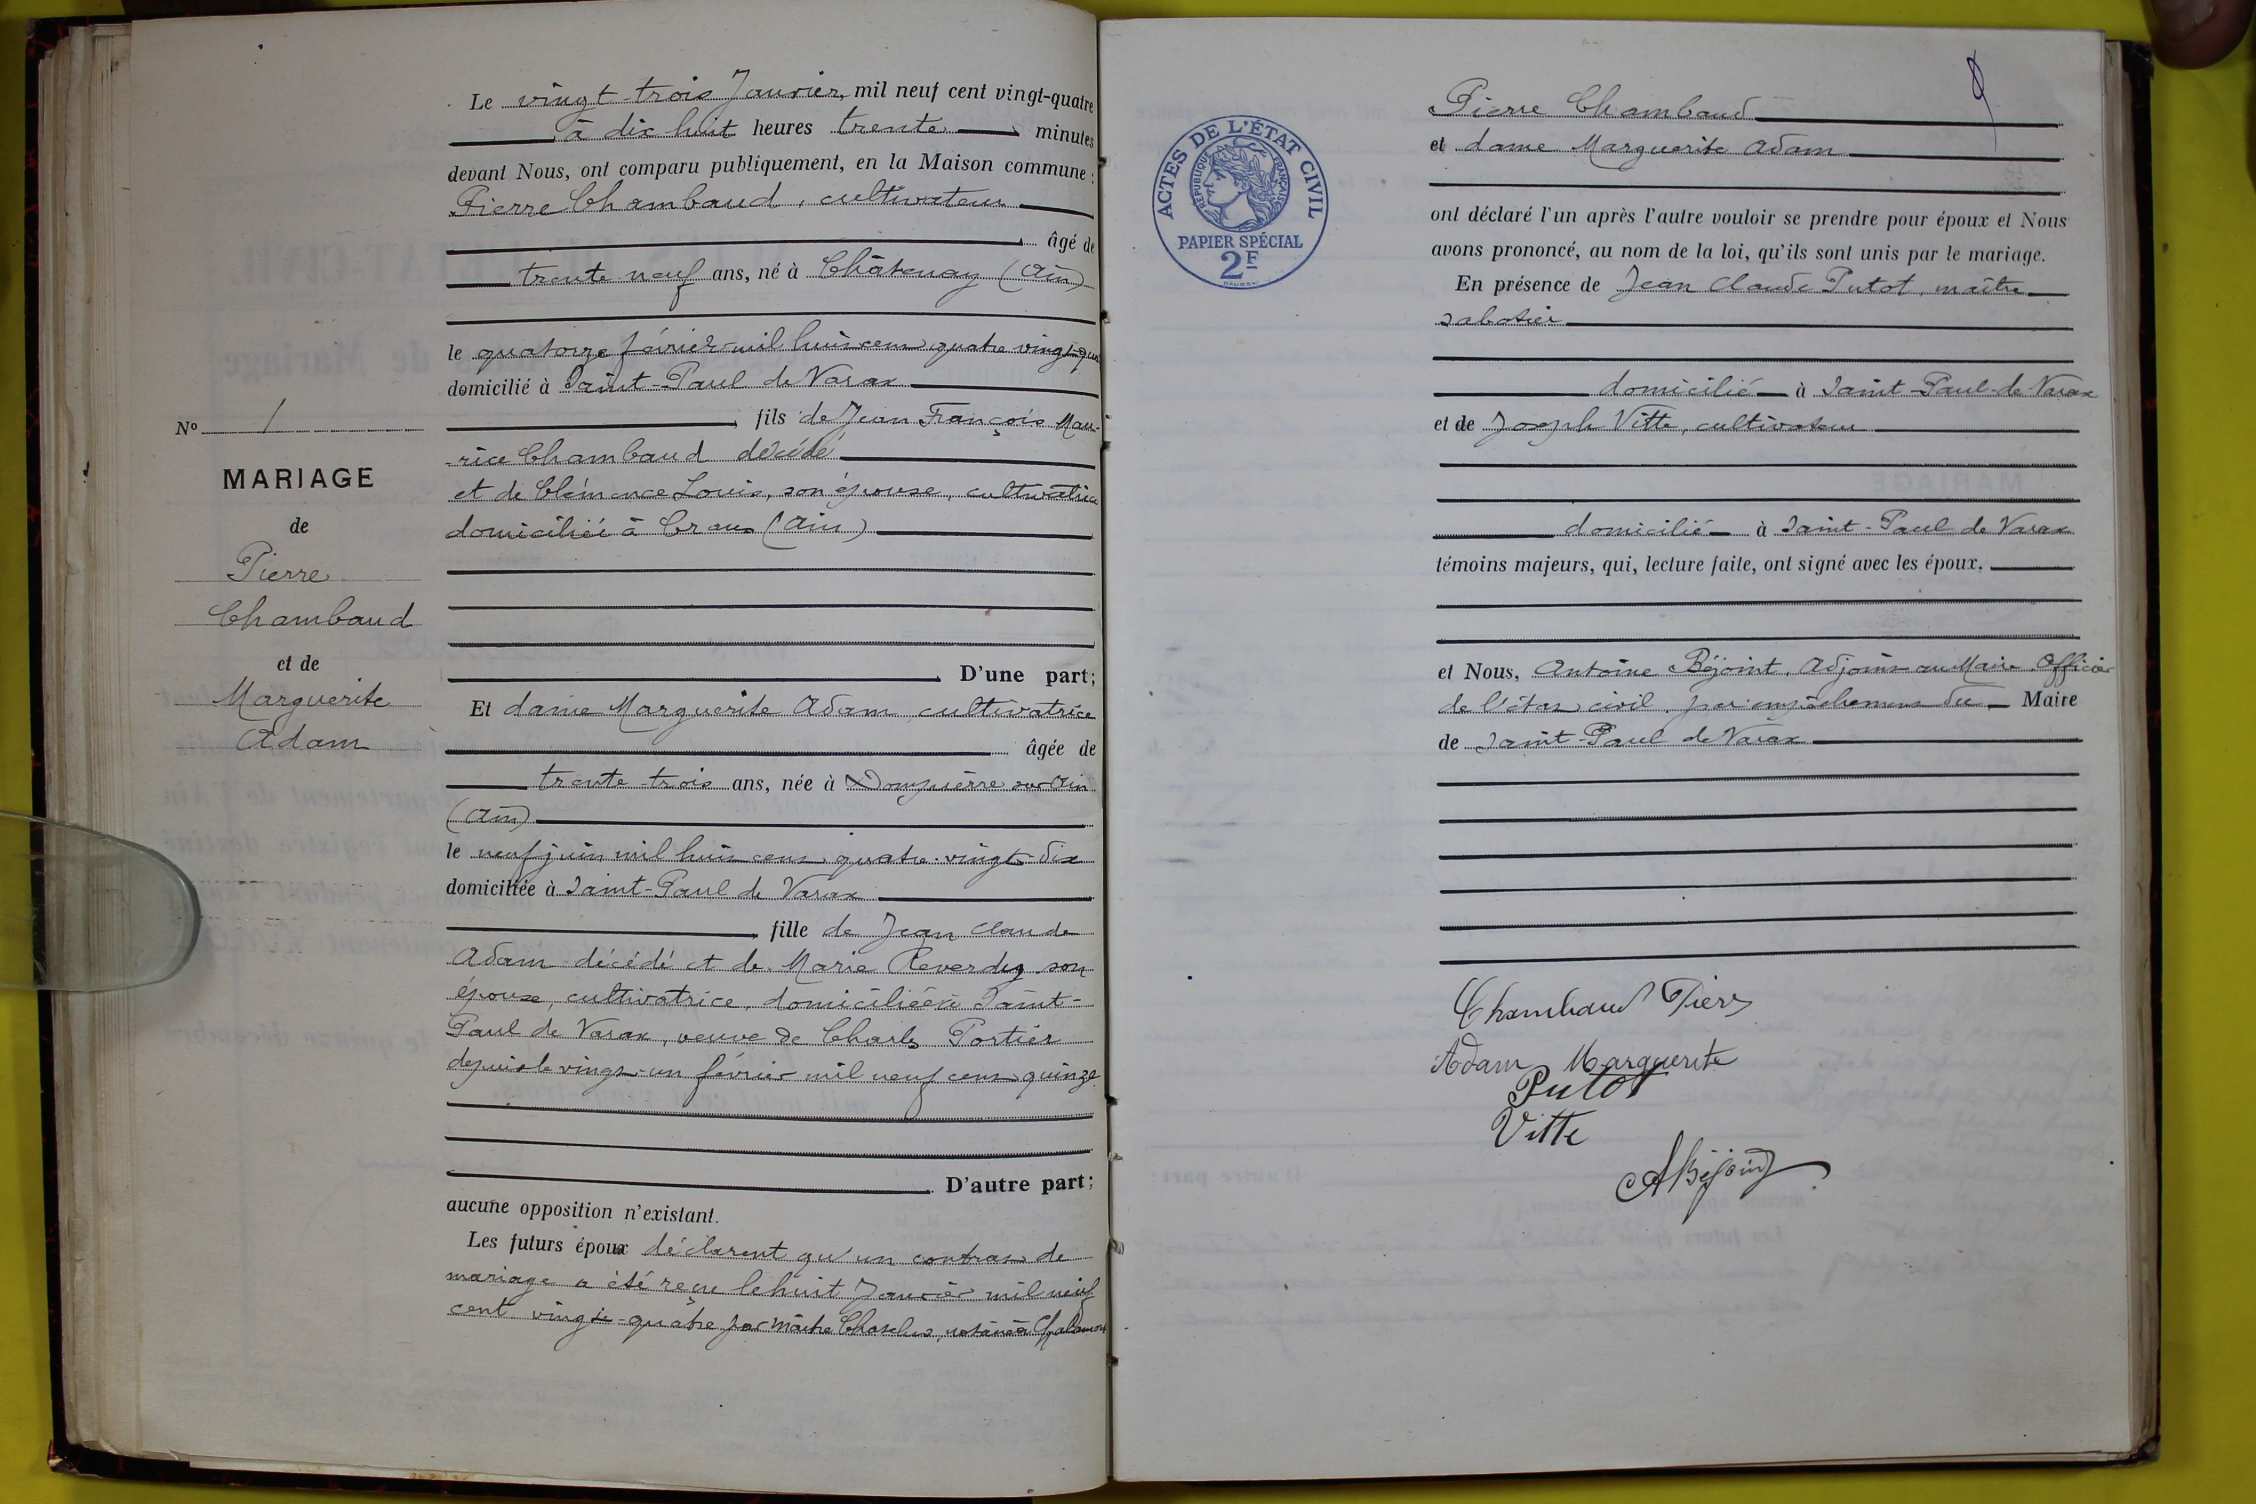 Le vingt-trois Janvier, mil neuf cent vingt-quatre
à dix huit heures trente minutes
devant Nous, ont comparu publiquement, en la Maison commune :
Pierre Chambaud, cultivateur
âgé de
trente neuf ans, né à Châtenay (Ain)
le quatorze février mil huit cent quatre vingt
domicilié à Saint-Paul de Varax
fils de Jean François Mau-
-rice Chambaud décédé
et de Clémence Louis, son épouse, cultivatrice
domiciliée à Crans (Ain)
D'une part;
Et dame Marguerite Adam cultivatrice
âgée de
trente-trois ans, née à Dompierre sur Ain
(Ain)
le neuf juin mil huit cent quatre-vingt-dix
domiciliée à Saint-Paul de Varax
fille de Jean Claude
Adam décédé et de Marie Reverdy son
épouse, cultivatrice, domiciliée à Saint-
Paul de Varax, veuve de Charles Portier
depuis le vingt-un février mil neuf cent quinze
D'autre part;
aucune opposition n'existant.
Les futurs époux déclarent qu'un contrat de
mariage a été reçu le huit Janvier mil neuf
cent vingt-quatre par Maître notaire à Chalamont
N° 1
MARIAGE
de
Pierre
Chambaud
et de
Marguerite
Adam
ACTES DE L'ÉTAT CIVIL
RÉPUBLIQUE FRANÇAISE
PAPIER SPÉCIAL
2F
Pierre Chambaud
et dame Marguerite Adam
ont déclaré l'un après l'autre vouloir se prendre pour époux et Nous
avons prononcé, au nom de la loi, qu'ils sont unis par le mariage.
En présence de Jean Claude Putot, maître
sabotier
domicilié à Saint-Paul-de Varax
et de Joseph Vitte, cultivateur
domicilié à Saint-Paul de Varax
témoins majeurs, qui, lecture faite, ont signé avec les époux.
et Nous, Antoine Béjoint, Adjoint au Maire Officier
de l'état civil, par empêchement du Maire
de Saint-Paul de Varax
Chambaud Pierre
Adam Marguerite
Putot
Vitte
A Béjoint